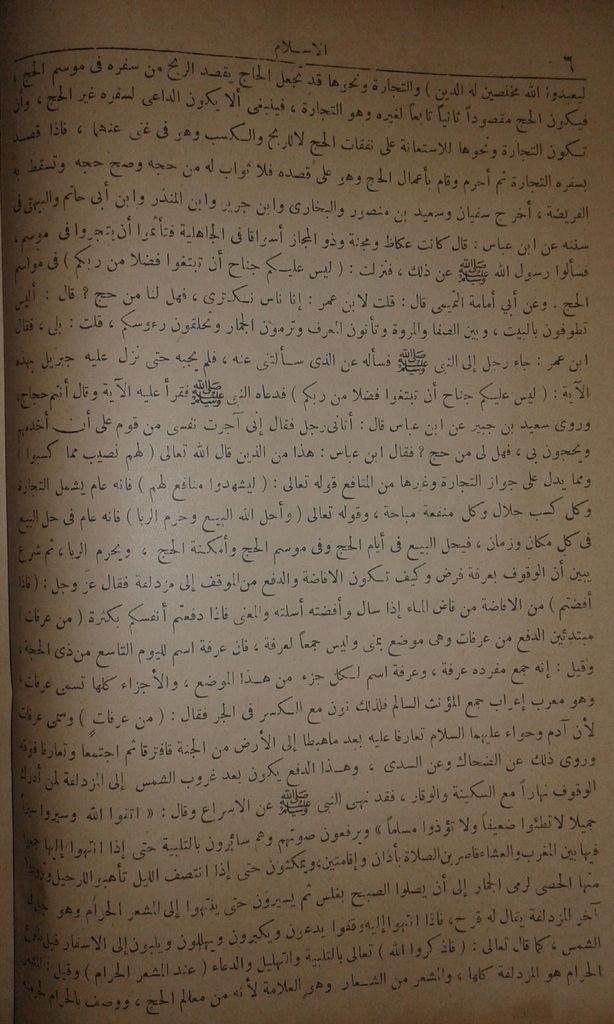 الاسلام
٦
ليعبدوا الله مخلصين له الدين ) والتجارة ونحوها قد تجعل الحاج يقصد الربح من سفره فى موسم الحج ،
فيكون الحج مقصوداً ثانياً تابعاً لغيره وهو التجارة ، فينبغى ألا يكون الداعى لسفره غير الحج ، وأن
تكون التجارة ونحوها للاستعانة على نفقات الحج لا للربح والكسب وهو فى غنى عنهما ، فاذا قصد
بسفره التجارة ثم أحرم وقام بأعمال الحج وهو على قصده فلا ثواب له من حجه وصح حجه وتسقط به
الفريضة ، أخرج سفيان وسعيد بن منصور والبخارى وابن جرير وابن المنذر وابن أبى حاتم والبيهقى فى
سننه عن ابن عباس : قال كانت عكاظ ومجنة وذو المجاز أسواقا فى الجاهلية فتأثموا أن يتجروا فى موسم ،
فسألوا رسول الله ﷺ عن ذلك ، فنزلت : ( ليس عليكم جناح أن تبتغوا فضلا من ربكم ) فى مواسم
الحج . وعن أبي أمامة التيمى قال : قلت لابن عمر : إنا ناس نكترى ، فهل لنا من حج ؟ قال : أليس
تطوفون بالبيت ، وبين الصفا والمروة وتأتون المعرف وترمون الجمار وتحلقون رءوسكم ، قلت : بلى ، فقال
ابن عمر : جاء رجل إلى النبى ﷺ فسأله عن الذى سألتنى عنه ، فلم يجبه حتى نزل عليه جبريل بهذه
الآية : ( ليس عليكم جناح أن تبتغوا فضلا من ربكم ) فدعاه النبى ﷺ فقرأ عليه الآية وقال أنتم حجاج ،
وروى سعيد بن جبير عن ابن عباس قال : أتانى رجل فقال إنى آجرت نفسى من قوم على أن أخدمهم
ويحجون بى ، فهل لى من حج ؟ فقال ابن عباس : هذا من الذين قال الله تعالى ( لهم نصيب مما كسبوا )
ومما يدل على جواز التجارة وغيرها من المنافع قوله تعالى : ( ليشهدوا منافع لهم ) فانه عام يشمل التجارة
وكل كسب حلال وكل منفعة مباحة ، وقوله تعالى ( وأحل الله البيع وحرم الربا ) فانه عام فى حل البيع
فى كل مكان وزمان ، فيحل البيع فى أيام الحج وفى موسم الحج وأمكنة الحج ، ويحرم الربا ، ثم شرع
يبين أن الوقوف بعرفة فرض وكيف تكون الافاضة والدفع من الموقف إلى مزدلفة فقال عز وجل : ( فاذا
أفضتم ) من الافاضة من فاض الماء إذا سال وأفضته أسلته والمعنى فاذا دفعتم أنفسكم بكثرة ( من عرفات )
مبتدئين الدفع من عرفات وهى موضع بمنى وليس جمعاً لعرفة ، فان عرفة اسم لليوم التاسع من ذى الحجة ،
وقيل : إنه جمع مفرده عرفة ، وعرفة اسم لكل جزء من هذا الموضع ، والأجزاء كلها تسمى عرفات ،
وهو معرب إعراب جمع المؤنث السالم فلذلك نون مع الكسر فى الجر فقال : ( من عرفات ) وسمى عرفات
لأن آدم وحواء عليهما السلام تعارفا عليه بعد ماهبطا إلى الأرض من الجنة فافترقا ثم اجتمعا وتعارفا فوقه
وروى ذلك عن الضحاك وعن السدى ، وهذا الدفع يكون بعد غروب الشمس إلى المزدلفة لمن أدرك
الوقوف نهاراً مع السكينة والوقار ، فقد نهى النبى ﷺ عن الاسراع وقال : « اتقوا الله وسيروا سيرا
جميلا لا تطئوا ضعيفاً ولا تؤذوا مسلماً » ويرفعون صوتهم وهم سائرون بالتلبية حتى إذا انتهوا إليها جمعوا
فيها بين المغرب والعشاء قاصرين الصلاة بأذان وإقامتين ، ويمكثون حتى إذا انتصف الليل تأهبوا للرحيل
منها الحصى لرمى الجمار إلى أن يصلوا الصبح بغلس ثم يسيرون حتى ينتهوا إلى المشعر الحرام وهو
آخر المزدلفة يقال له قزح ، فاذا انتهوا إليه وقفوا يدعون ويكبرون ويهللون ويلبون إلى الاسفار قبل
الشمس ، كما قال تعالى : ( فاذكروا الله ) تعالى بالتلبية والتهليل والدعاء ( عند المشعر الحرام ) وقيل :
الحرام هو المزدلفة كلها ، والمشعر من الشعار وهو العلامة لأنه من معالم الحج ، ووصف بالحرام